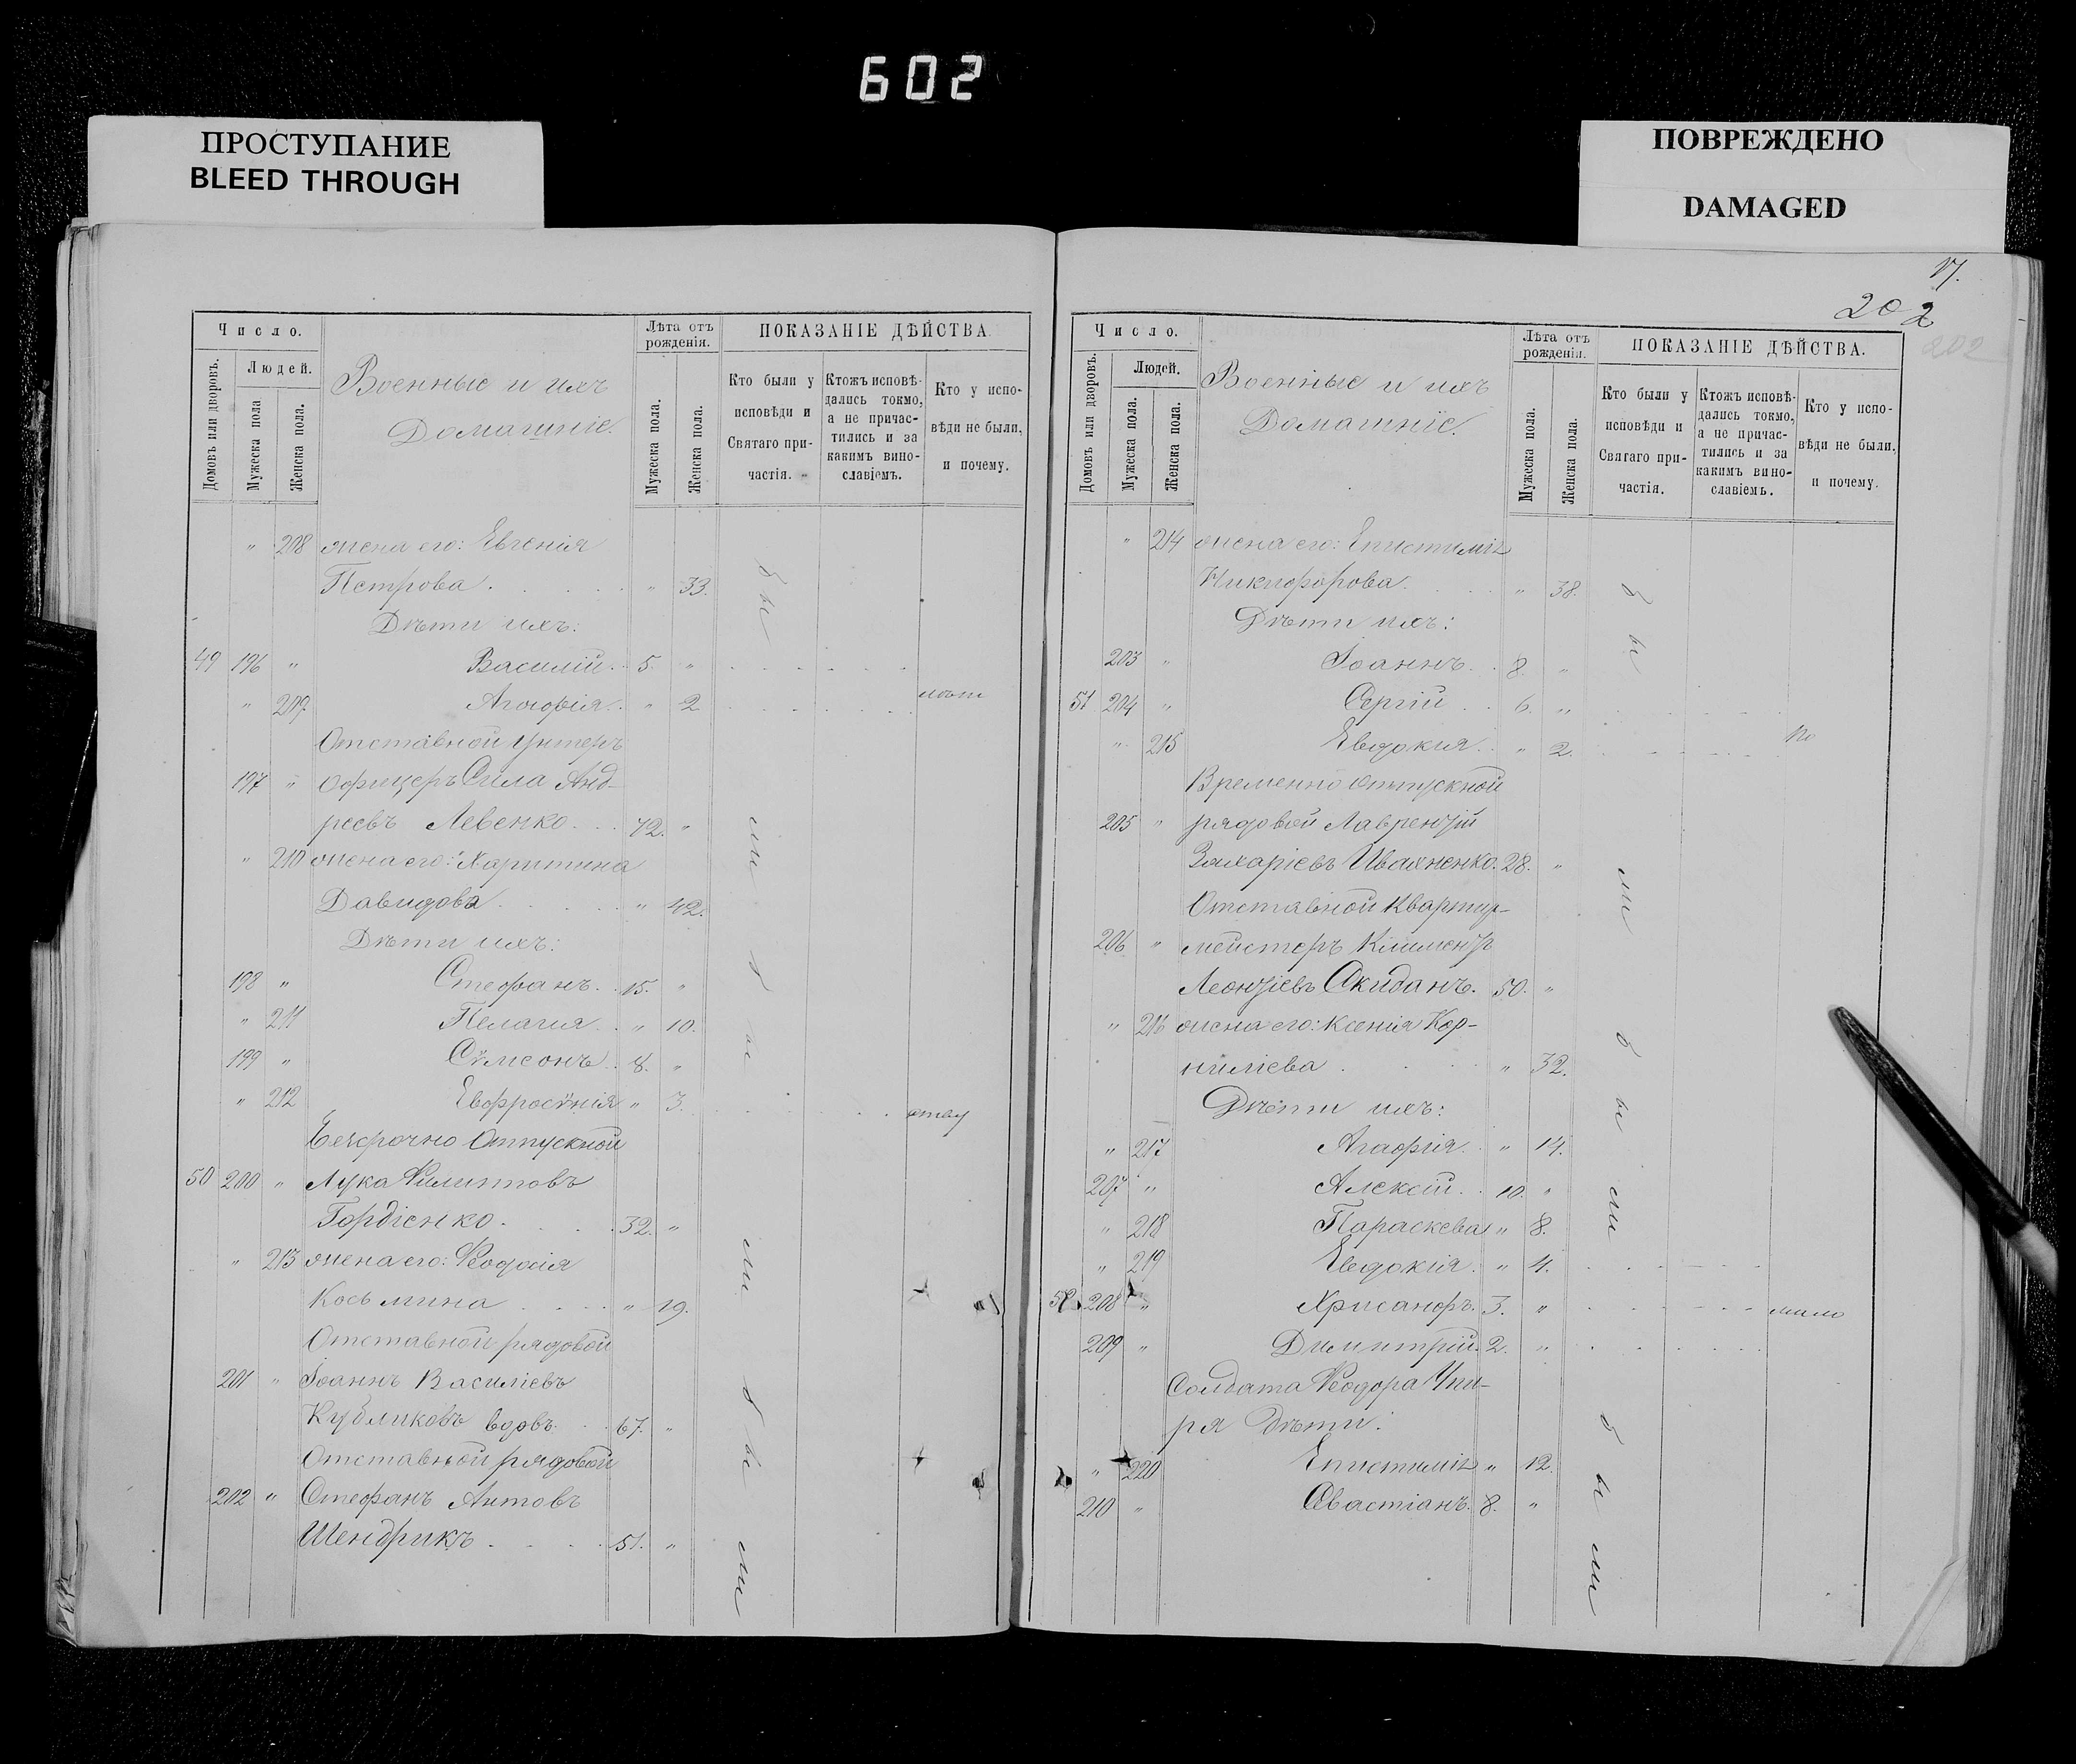 602
ПРОСТУПАНИЕ
BLEED THROUGH
ПОВРЕЖДЕНО
DAMAGED
Число.
Людей.
Домовъ или дворовъ.
Мужеска пола
Женска пола.
Военные и ихъ
Домашніе.
Лѣта отъ
рожденія.
Мужеска пола.
Женска пола.
ПОКАЗАНІЕ ДѢЙСТВА.
Кто были у
исповѣди и
Святаго при-
частія.
Ктожъ исповѣ-
дались токмо,
а не причас-
тились и за
какимъ вино-
славіемъ.
Кто у испо-
вѣди не были,
и почему.
" 208 жена его: Евгенія
Петрова . " 33.
Дѣти ихъ:
49 196 " Василій . 5. "
" 209 Агафія . " 2
лѣт
Отставной Унтеръ
197 " офицеръ Сила Анд-
реевъ Левенко . 42. "
" 210 жена его: Харитина
Давидова . " 42.
Дѣти ихъ:
198 " Стефанъ . 15. "
" 211 Пелагія . " 10.
199 " Сѵмеонъ . 8. "
" 212 Евфросѵнія " 3.
Безсрочно Отпускной
50 200 " Лука Филипповъ
Гордіенко . 32. "
" 213 жена его: Феодосія
Косьмина . " 19.
Отставной рядовой
201 " Іоаннъ Василіевъ
Кубликовъ вдовъ . 67. "
Отставной рядовой
202 " Стефанъ Антовъ
Шендрикъ . 51. "
были были были
17.
202
202
Число.
Людей.
Домовъ или дворовъ.
Мужеска пола.
Женска пола.
Военные и ихъ
Домашніе.
Лѣта отъ
рожденія.
Мужеска пола.
Женска пола.
ПОКАЗАНІЕ ДѢЙСТВА.
Кто были у
исповѣди и
Святаго при-
частія.
Ктожъ исповѣ-
дались токмо,
а не причас-
тились и за
какимъ вино-
славіемъ.
Кто у испо-
вѣди не были,
и почему.
" 214 жена его: Епистимія
Никифорова . " 38.
Дѣти ихъ:
203 " Іоаннъ . 8. "
51 204 " Сергій . 6. "
" 215 Евдокия . " 2.
по
Временно Отпускной
205 " рядовой Лаврентій
Захаріевъ Ивахненко. 28. "
Отставной Квартир-
206 " мейстеръ Климентъ
Леонтіевъ Скиданъ. 50. "
" 216 жена его: Ксенія Кор-
ниліева . " 32.
Дѣти ихъ:
" 217 Агафия . " 14.
207 " Алексій . 10. "
" 218 Параскева " 8.
" 219 Евдокія . " 4.
52 208 " Хрисанфъ. 3. "
мало
209 " Димитрій. 2. "
Солдата Феодора Упи-
ря дѣти:
" 220 Епистимія " 12.
210 " Севастіанъ. 8. "
были были были